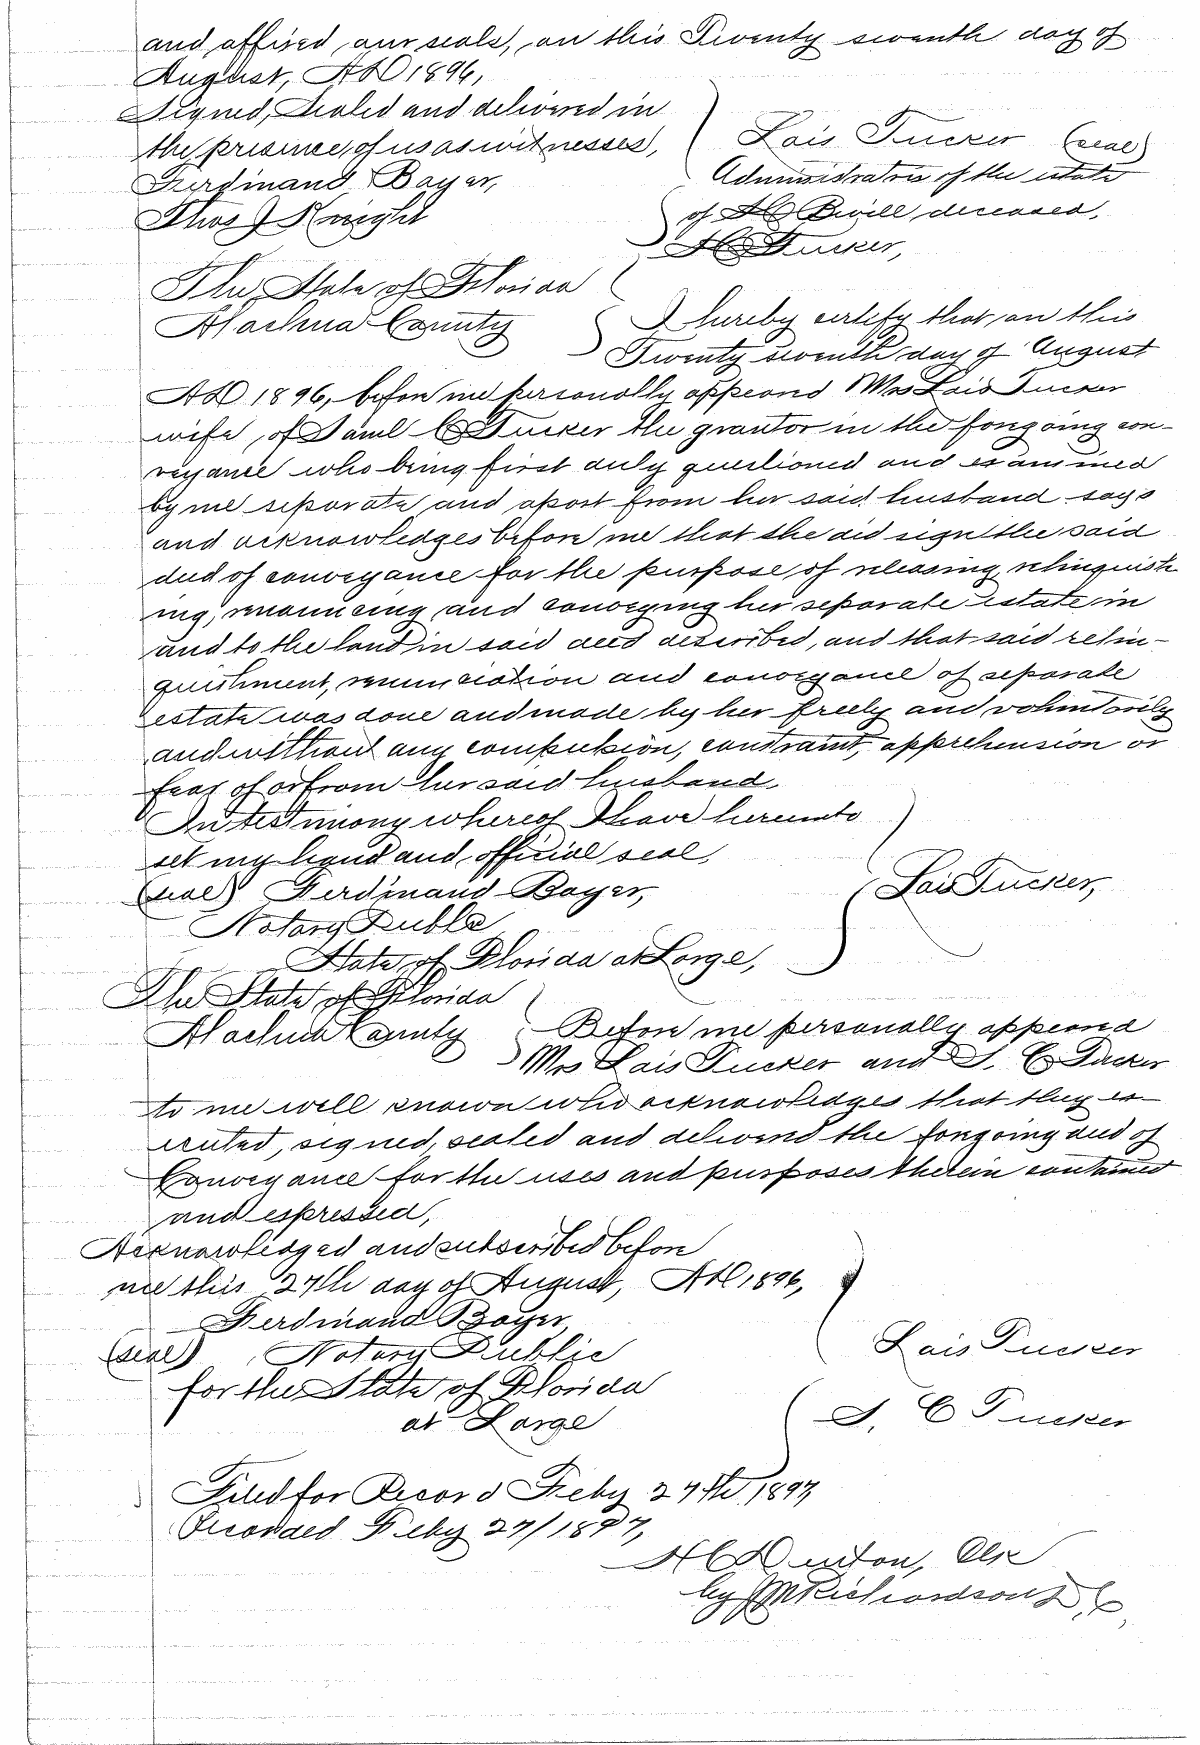 and affixed our seals, on this Twenty seventh day of
August, AD 1896,
Signed, Sealed and delivered in
the presence, of us as witnesses,
Ferdinand Bayer,
Thos J Knight
Lois Tucker (seal)
Administratrix of the estate
of Bevill deceased,
Tucker,
The State of Florida
Alachua County
I hereby certify that, on this
Twenty seventh day of August
AD 1896, before me personally appeared Mrs Lois Tucker
wife, of Saml C Tucker the grantor in the foregoing con-
veyance who being first duly questioned and examined
by me separate and apart from her said husband says
and acknowledges before me that she did sign the said
deed of conveyance for the purpose of releasing, relinquish
ing, renouncing and conveying her separate estate in
and to the land in said deed described, and that said relin-
quishment, renunciation and conveyance of separate
estate was done and made by her freely and voluntarily
and without any compulsion, constraint, apprehension or
fear of or from her said husband,
In testimony whereof I have hereunto
set my hand and official seal,
(seal) Ferdinand Bayer,
Lois Tucker,
Notary Public
State of Florida at Large,
The State of Florida
Alachua County
Before me personally appeared
Mrs Lois Tucker and S. C Tucker
to me well known who acknowledges that they ex-
ecuted, signed, sealed and delivered the foregoing deed of
Conveyance for the uses and purposes therein contained
and expressed,
Acknowledged and subscribed before
me this 27th day of August, AD 1896,
Ferdinand Bayer,
(seal) Notary Public
for the State of Florida
at Large
Lois Tucker
S. C Tucker
Filed for Record Feby 27th 1897
Recorded Feby 27/1897,
H C Denton, Clk
by J M Richardson D, C,